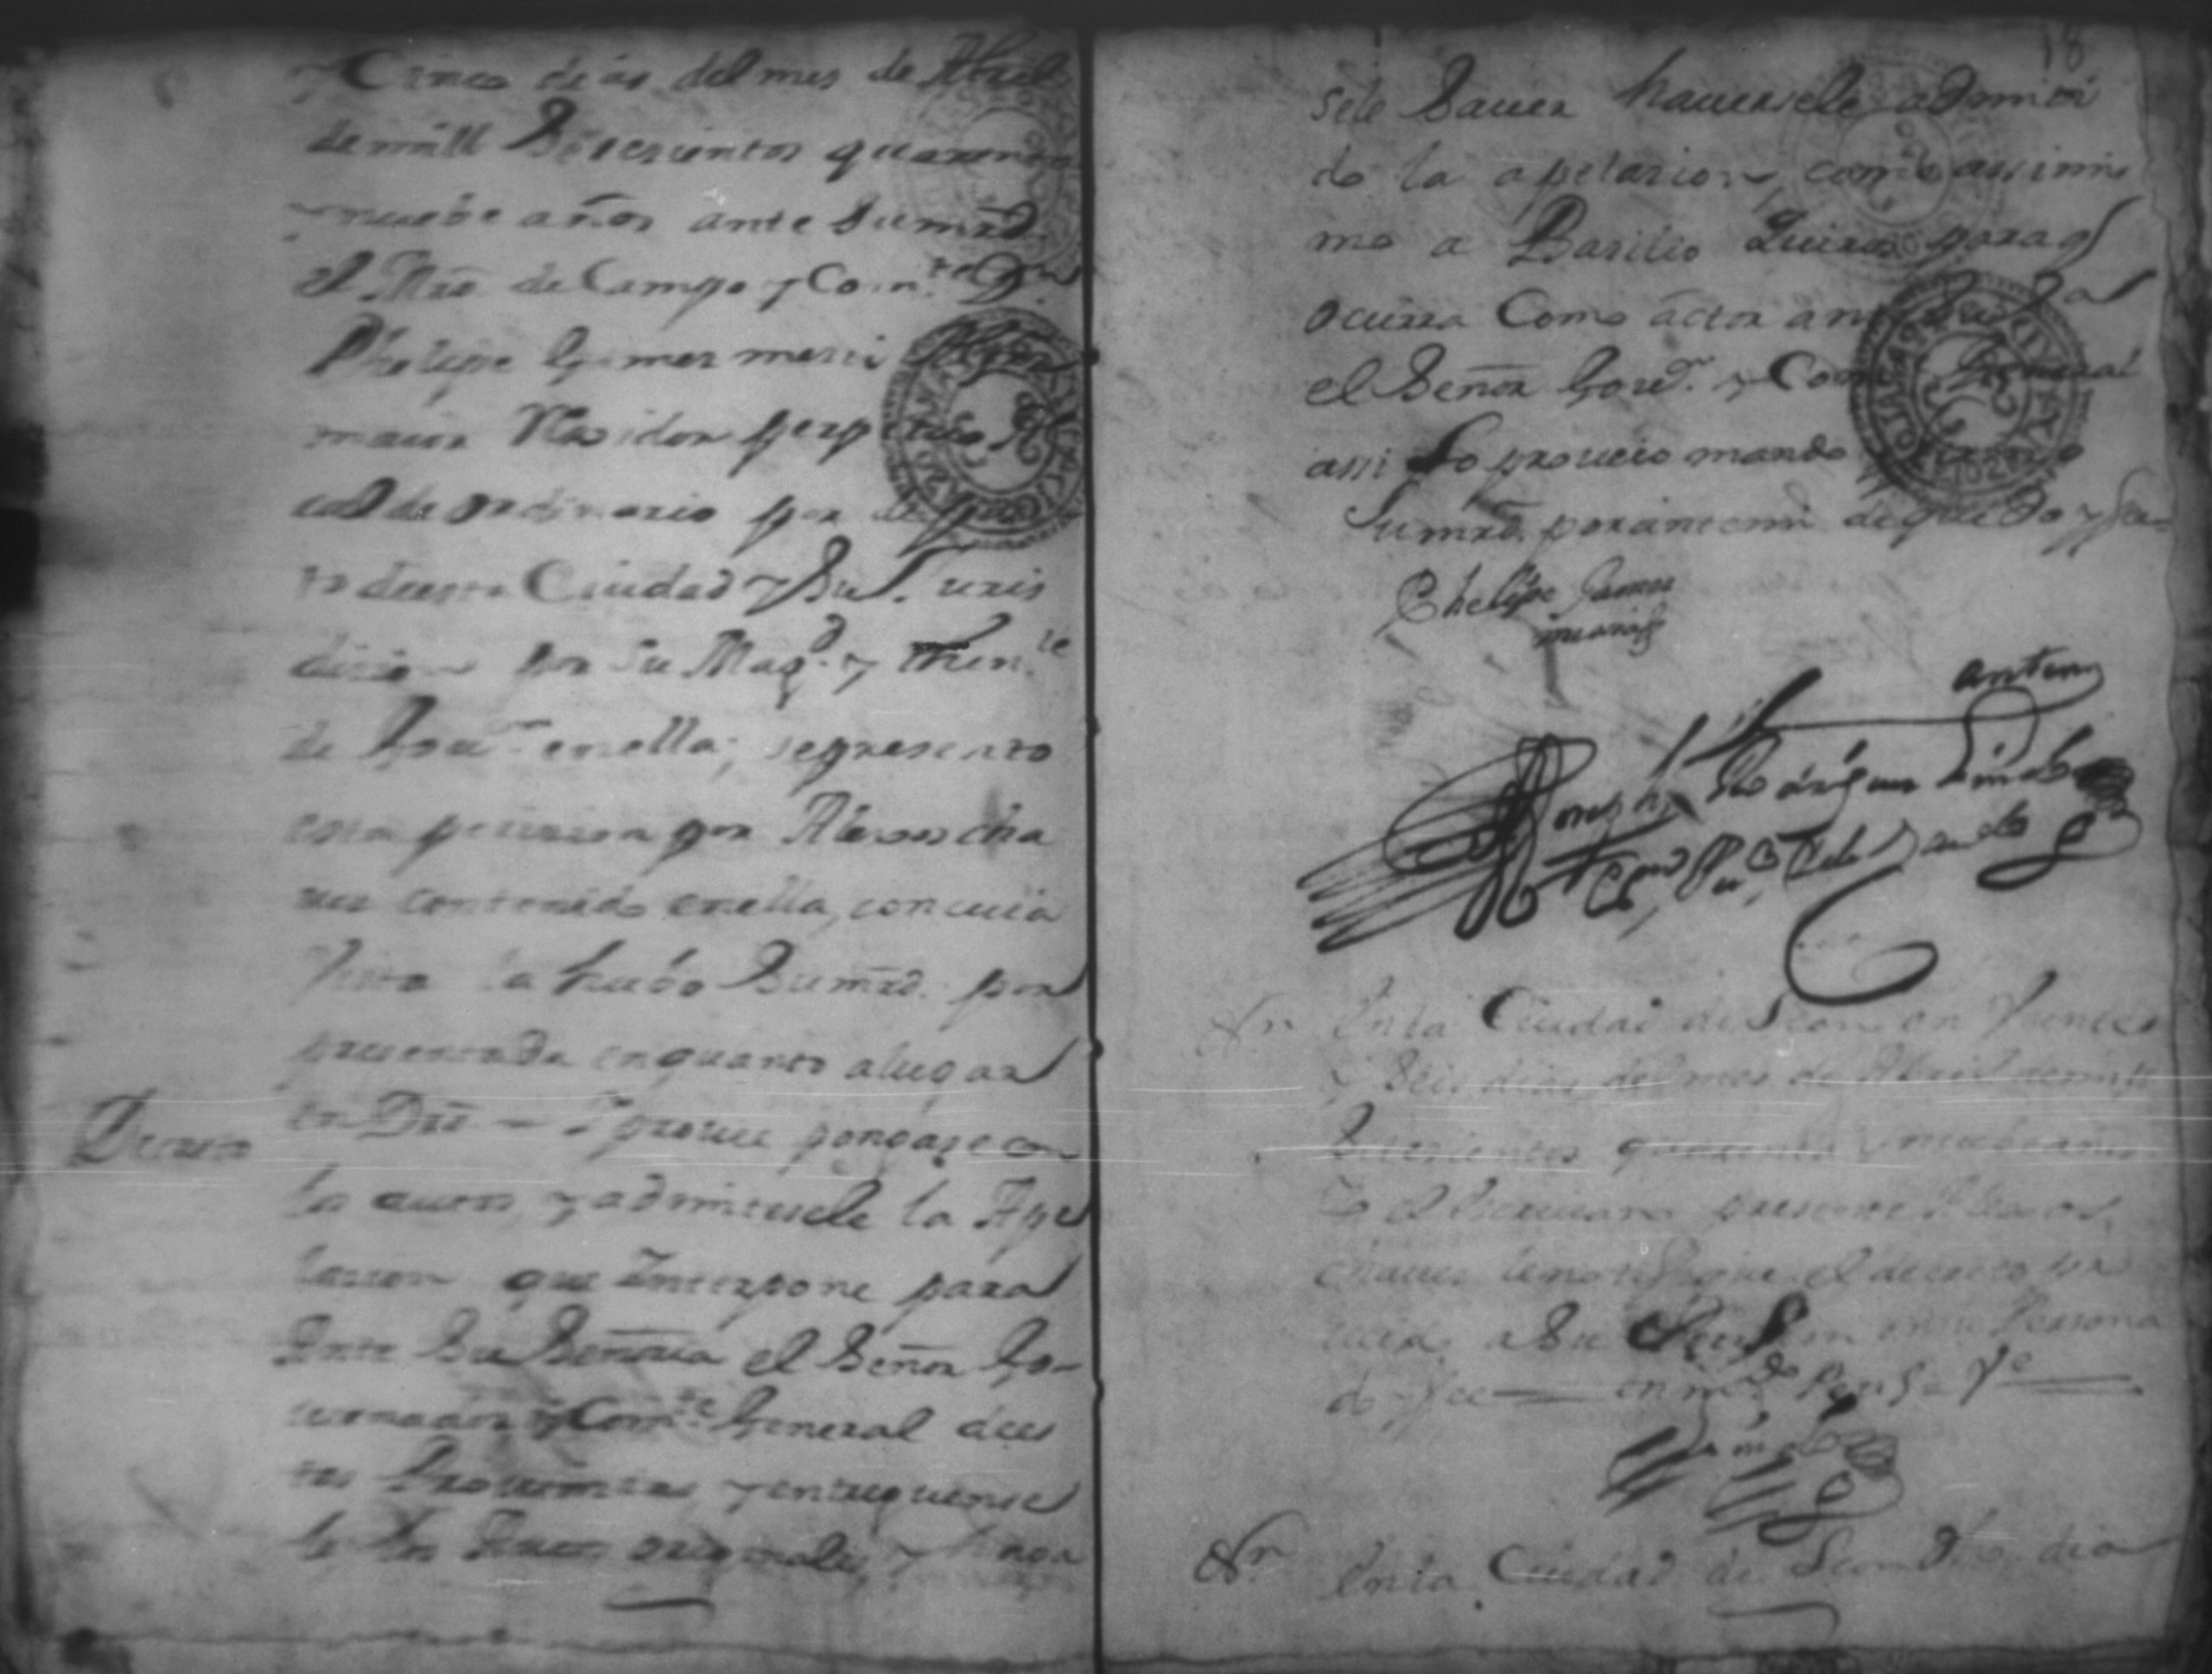 y Cinco dias del mes de Abril
de mill Setecientos quarenta
y nuebe años ante Sumrd.
el Mro de Campo y Com.te Dn
Phelipe Gamez messi
maior Rexidor perpetuo
calde ordinario por
ta de esta Ciudad y Su Juris
dicion por Su Magd. y Then.te
de Gou.r en ella; se presento
esta peticion por Alexos cha
ues contenido en ella, con cuia
Vista la hubo Sumrd. por
presentada en quanto alugar
en Dro. Y prouee pongase con
Decreto
los autos y admitesele la Ape
lacion que Interpone para
Ante Su Señoria el Señor Go-
uernador y Com.te General de es
tas Prouincias y entreguense
le los Autos originales, y haga
18
sele Sauer hauersele admiti
do la apelacion, como assimis
mo a Basilio Quiros para q
ocurra Como actor ante Su Sa
el Señor Gour. y Com General
assi Lo proueio mando y firmo
Sumrd. por ante mi de que Doy fee
Phelipe Gamez
messia
ante mi
Rodriguez Pineda
Esno Puco
Nn En la Ciudad de Leon en Veinte
y Seis dias del mes de Abril de mill
Setecientos quarenta y nuebe años
Yo el Escriuano presente Alexos
chaues le notifique el decreto
a Su en su Persona
doy fee
Pineda
Nn En la Ciudad de Leon dho dia